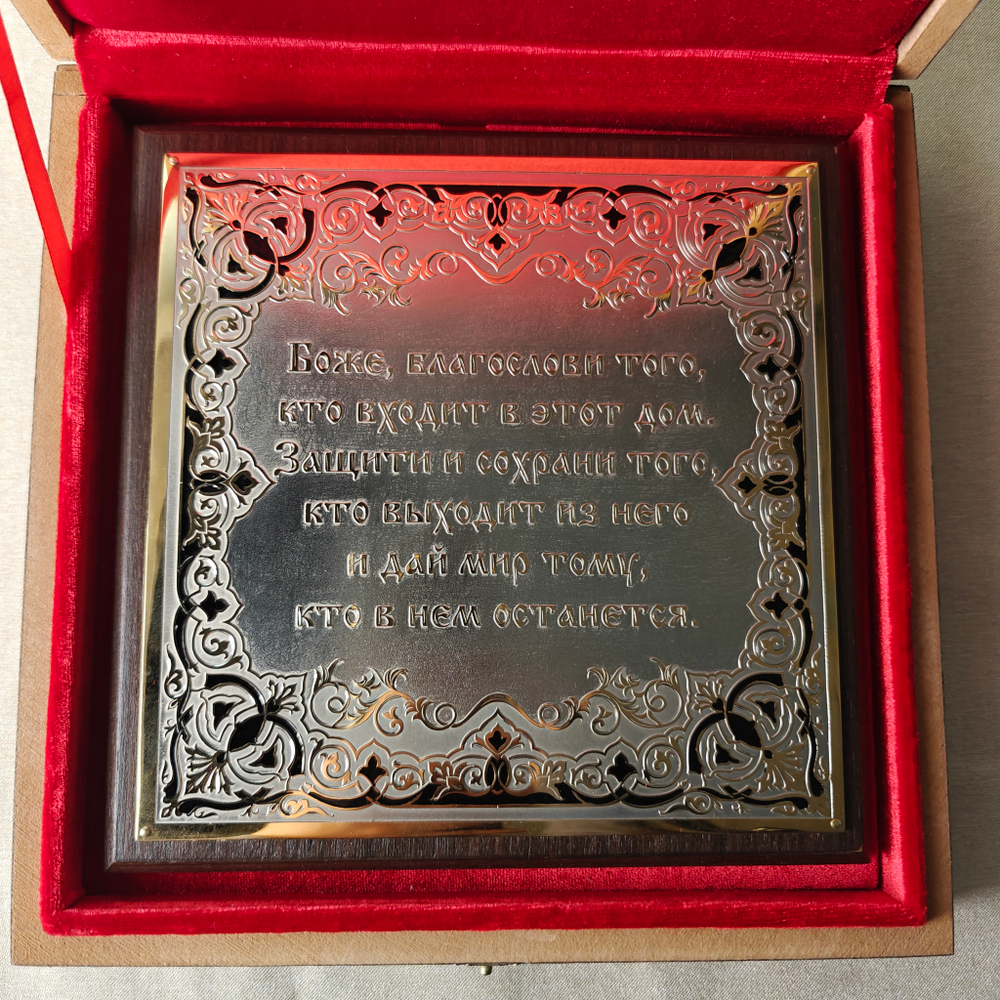 Боже, благослови того,
кто входит в этот дом.
Защити и сохрани того,
кто выходит из него
и дай мир тому,
кто в нем останется.